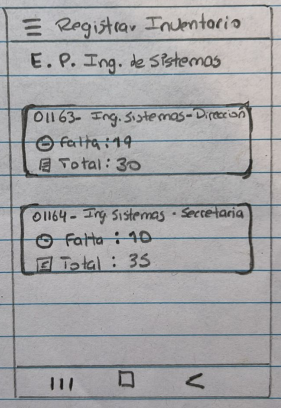 Registrar Inventario
E. P. Ing. de Sistemas
01163- Ing. Sistemas-Direccion
Falta: 19
Total: 30
01164- Ing Sistemas - Secretaria
Falta : 10
Total : 35